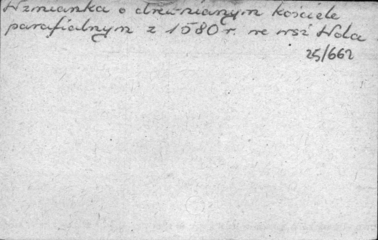 Wzmianka o drewnianym kościele
parafialnym z 1580 r. we wsi Wola
25/662